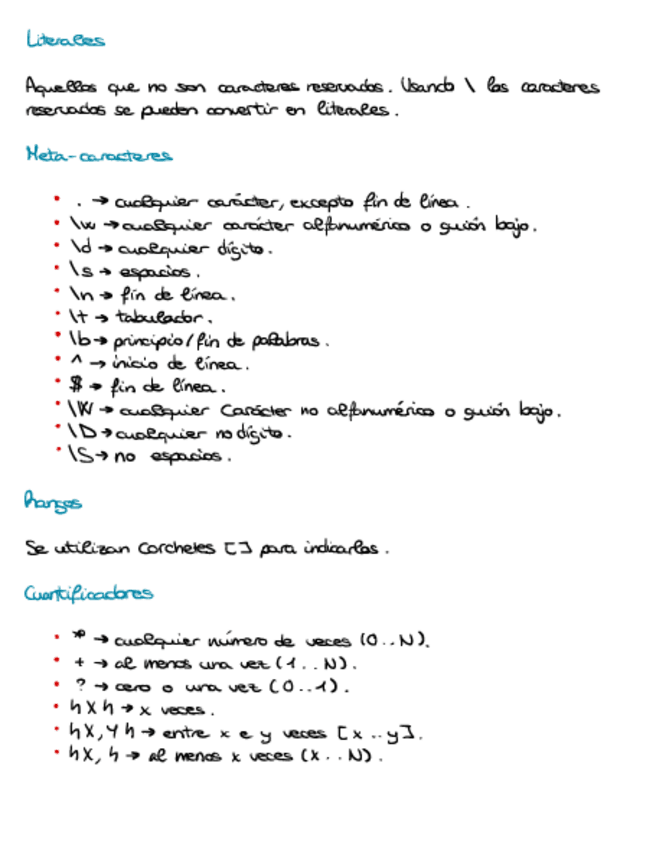 Literales
Aquellos que no son caracteres reservados. Usando \ los caracteres
reservados se pueden convertir en literales.
Meta-caracteres
• . → cualquier carácter, excepto fin de línea.
• \w → cualquier carácter alfanumérico o guión bajo.
• \d → cualquier dígito.
• \s → espacios.
• \n → fin de línea.
• \t → tabulador.
• \b → principio/fin de palabras.
• ^ → inicio de línea.
• $ → fin de línea.
• \W → cualquier carácter no alfanumérico o guión bajo.
• \D → cualquier no dígito.
• \S → no espacios.
Rangos
Se utilizan corchetes [] para indicarlos.
Cuantificadores
• * → cualquier número de veces (0..N).
• + → al menos una vez (1..N).
• ? → cero o una vez (0..1).
• {X} → x veces.
• {X,Y} → entre x e y veces [x..y].
• {X,} → al menos x veces (x..N).